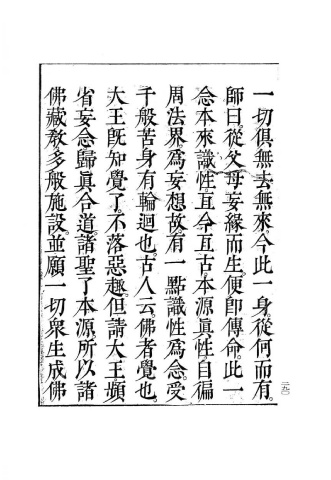 一切俱無去無來。今此一身。從何而有。
師曰。從父母妄緣而生。便即傳命。此一
念本來識性。亙今亙古。本源眞性。自徧
周法界。爲妄想故。有一點識性爲念。受
千般苦。身有輪迴也。古人云。佛者覺也。
大王既知覺了。不落惡趣。但請大王頻
省妄念。歸眞合道。諸聖了本源。所以諸
佛藏教多般施設。並願一切衆生成佛
二九〇